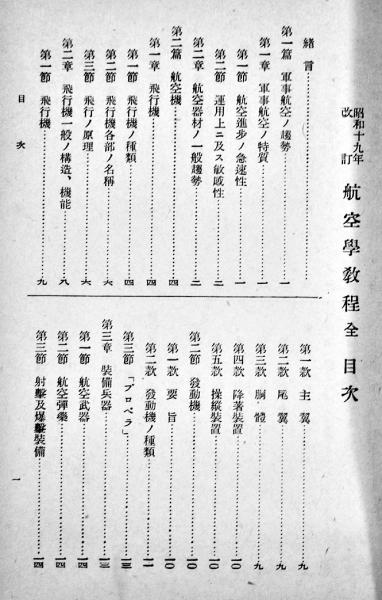 昭和十九年
改訂
航空學教程全 目次
緒言
第一篇 軍事航空ノ趨勢 一
第一章 軍事航空ノ特質 一
第一節 航空進步ノ急速性 一
第二節 運用上ニ及ス敏感性 二
第二章 航空器材ノ一般趨勢 二
第二篇 航空機 四
第一章 飛行機 四
第一節 飛行機ノ種類 四
第二節 飛行機各部ノ名稱 六
第三節 飛行ノ原理 六
第二章 飛行機一般ノ構造、機能 八
第一節 飛行機 九
第一款 主翼 九
第二款 尾翼 九
第三款 胴體 九
第四款 降著裝置 一〇
第五款 操縱裝置 一〇
第二節 發動機 一〇
第一款 要旨 一〇
第二款 發動機ノ種類 一一
第三節 「プロペラ」 一三
第三章 裝備兵器 一三
第一節 航空武器 一四
第二節 航空彈藥 一四
第三節 射擊及爆擊裝備 一四
目次 一